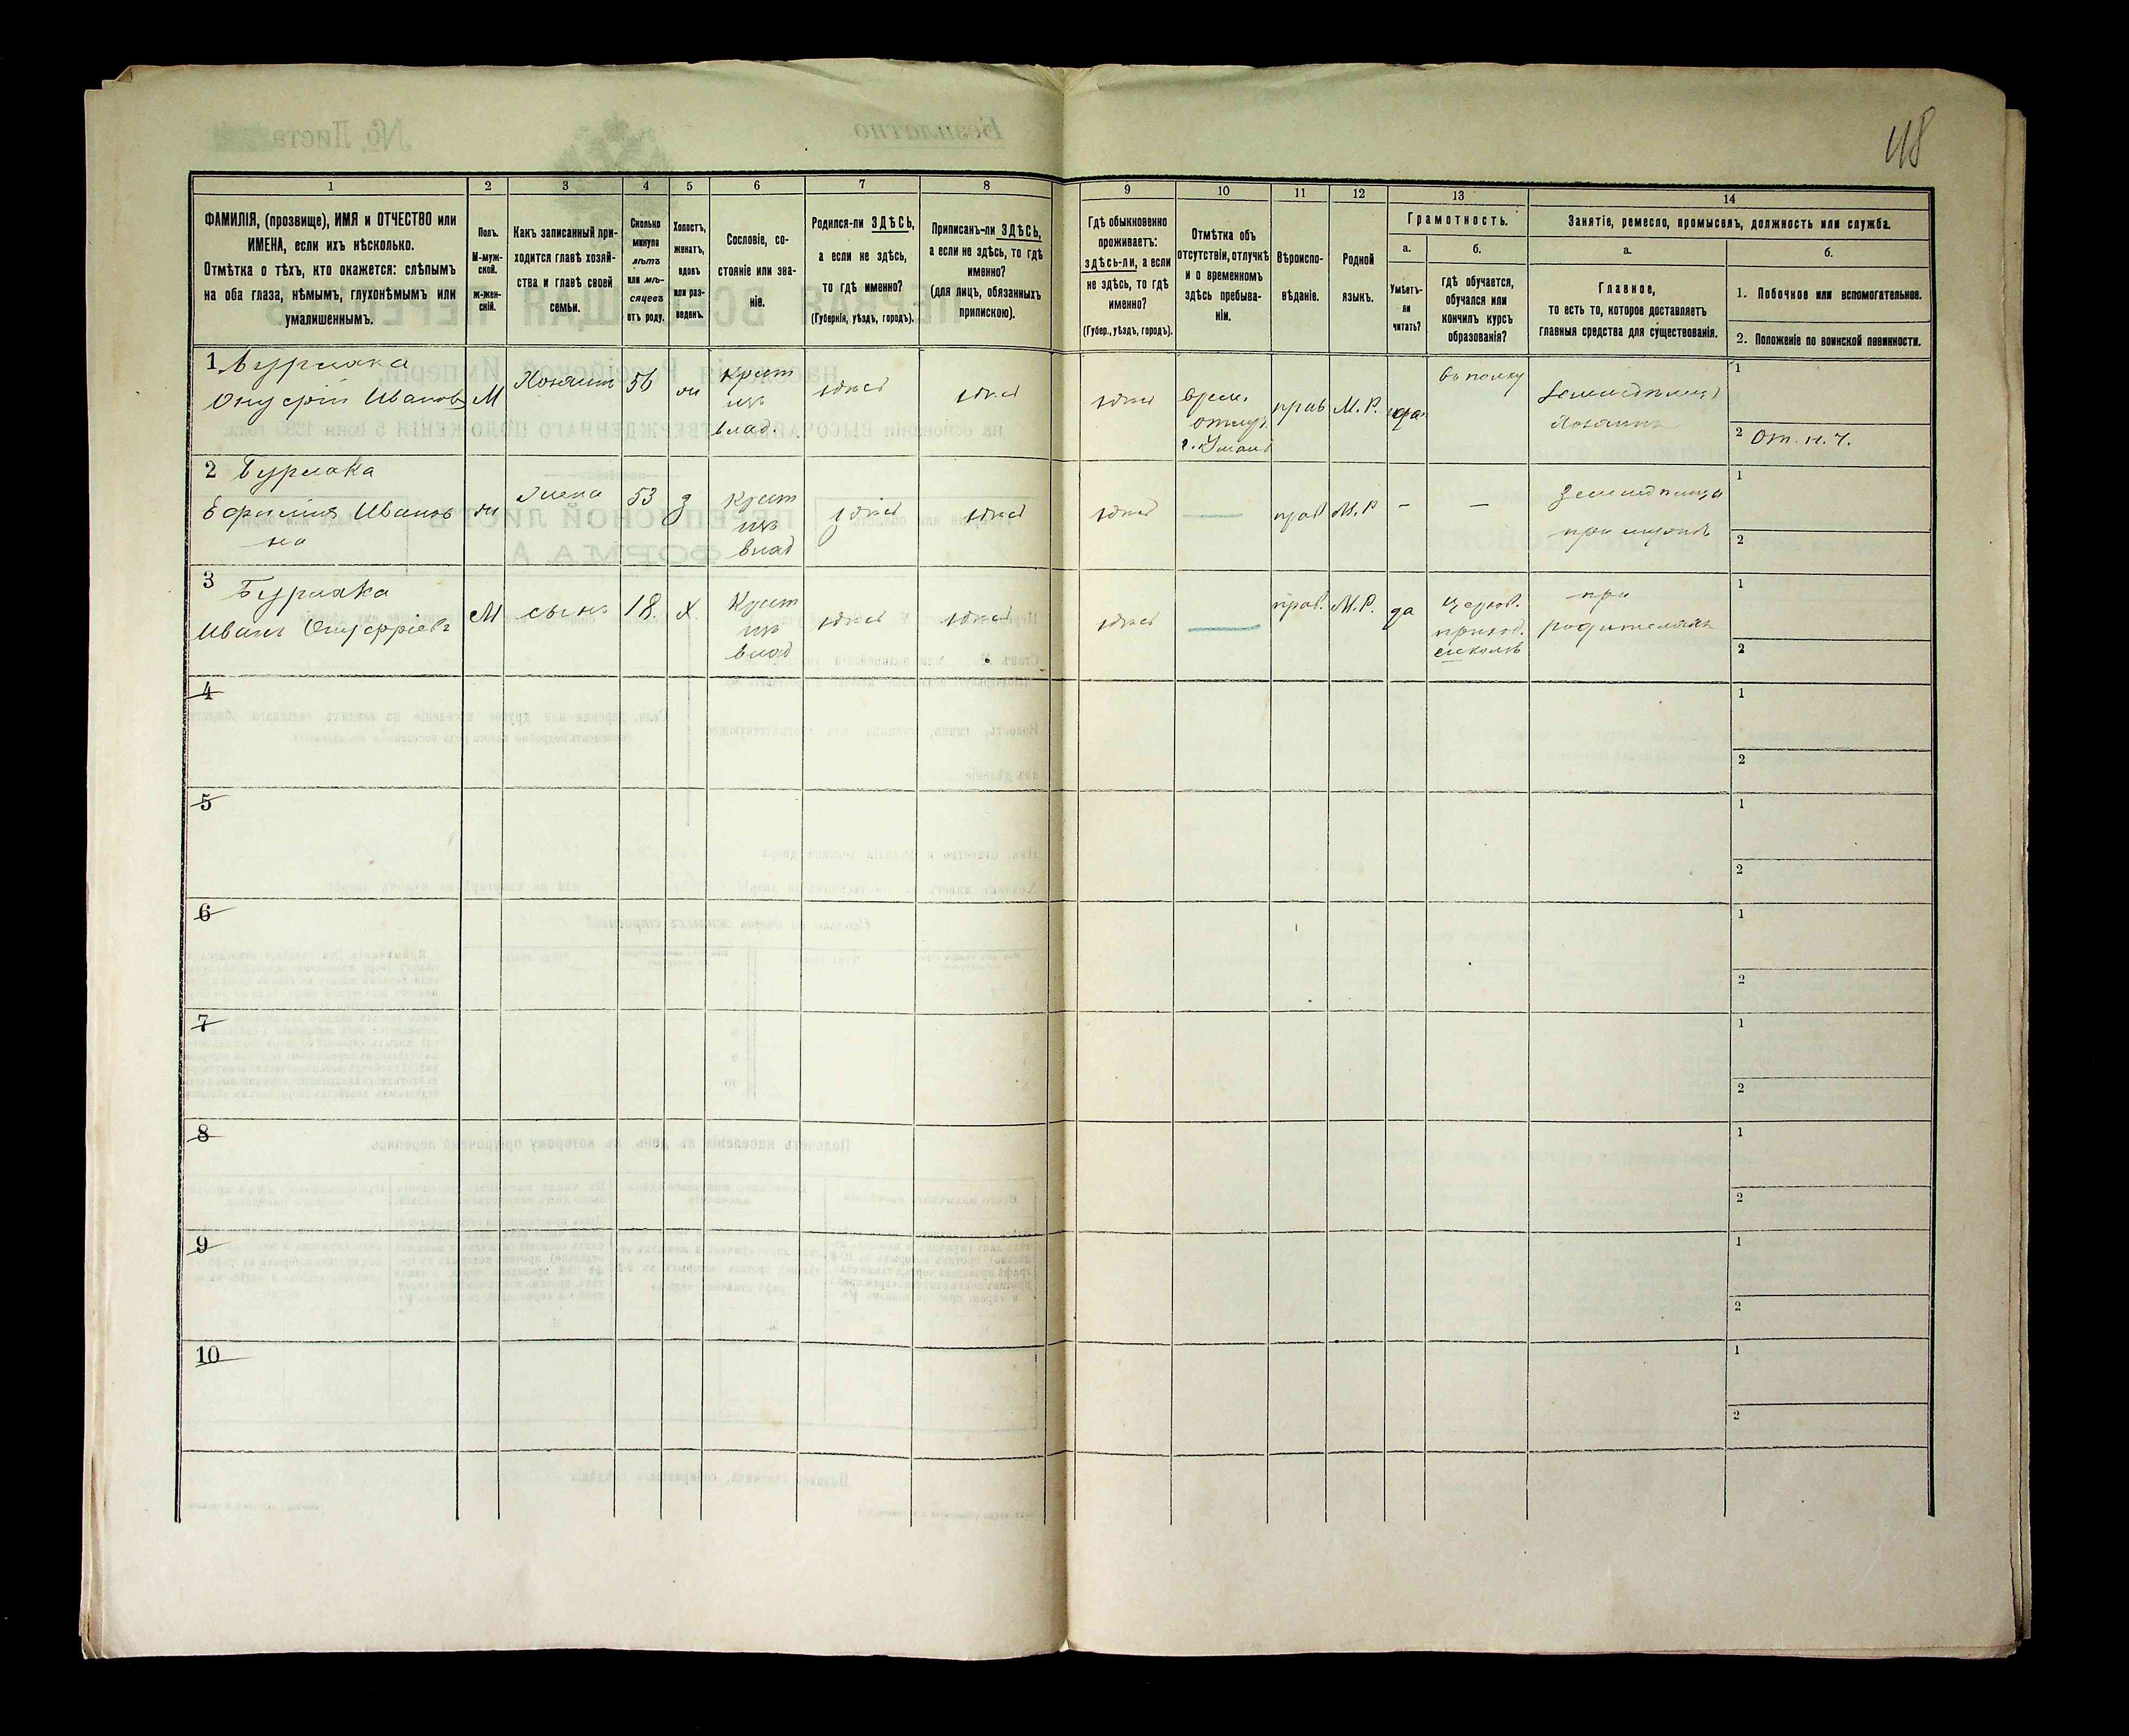 48
1
2
3
4
5
6
7
8
9
10
11
12
13
14
ФАМИЛІЯ, (прозвище), ИМЯ и ОТЧЕСТВО или
ИМЕНА, если ихъ нѣсколько.
Отмѣтка о тѣхъ, кто окажется: слѣпымъ
на оба глаза, нѣмымъ, глухонѣмымъ или
умалишеннымъ.
Полъ.
М-муж-
ской.
ж-жен-
скій.
Какъ записанный при-
ходится главѣ хозяй-
ства и главѣ своей
семьи.
Сколько
минуло
лѣтъ
или мѣ-
сяцевъ
отъ роду.
Холостъ,
женатъ,
вдовъ
или раз-
веденъ.
Сословіе, со-
стояніе или зва-
ніе.
Родился-ли ЗДѢСЬ,
а если не здѣсь,
то гдѣ именно?
(Губернія, уѣздъ, городъ).
Приписанъ-ли ЗДѢСЬ,
а если не здѣсь, то гдѣ
именно?
(для лицъ, обязанныхъ
припискою).
Гдѣ обыкновенно
проживаетъ:
здѣсь-ли, а если
не здѣсь, то гдѣ
именно?
(Губер., уѣздъ, городъ).
Отмѣтка объ
отсутствіи, отлучкѣ
и о временномъ
здѣсь пребыва-
ніи.
Вѣроиспо-
вѣданіе.
Родной
языкъ.
Грамотность.
а.
б.
Умѣетъ-
ли
читать?
гдѣ обучается,
обучался или
кончилъ курсъ
образованія?
Занятіе, ремесло, промыселъ, должность или служба.
а.
б.
Главное,
то есть то, которое доставляетъ
главныя средства для существованія.
1. Побочное или вспомогательное.
2. Положеніе по воинской повинности.
1 Бурлака
Онуфрій Ивановъ
М
Хозяинъ
56
ж
Крест
изъ
влад.
здѣсь
здѣсь
здѣсь
Врем.
отлуч.
г. Умань
прав
М. Р.
да
въ полку
Земледѣлецъ
Хозяинъ
1
2 От. н. ч.
2 Бурлака
Ефимія Иванов
на
ж
Жена
53
з
Крест
изъ
влад
здѣсь
здѣсь
здѣсь
—
прав
М. Р
—
—
Земледѣлица
при мужѣ
1
2
3 Бурлака
Иванъ Онуфріевъ
М
сынъ
18.
х
Крест
изъ
влад
здѣсь
здѣсь
здѣсь
—
прав.
М. Р.
да
Церков.
приход.
школѣ
при
родителяхъ
1
2
4
1
2
5
1
2
6
1
2
7
1
2
8
1
2
9
1
2
10
1
2